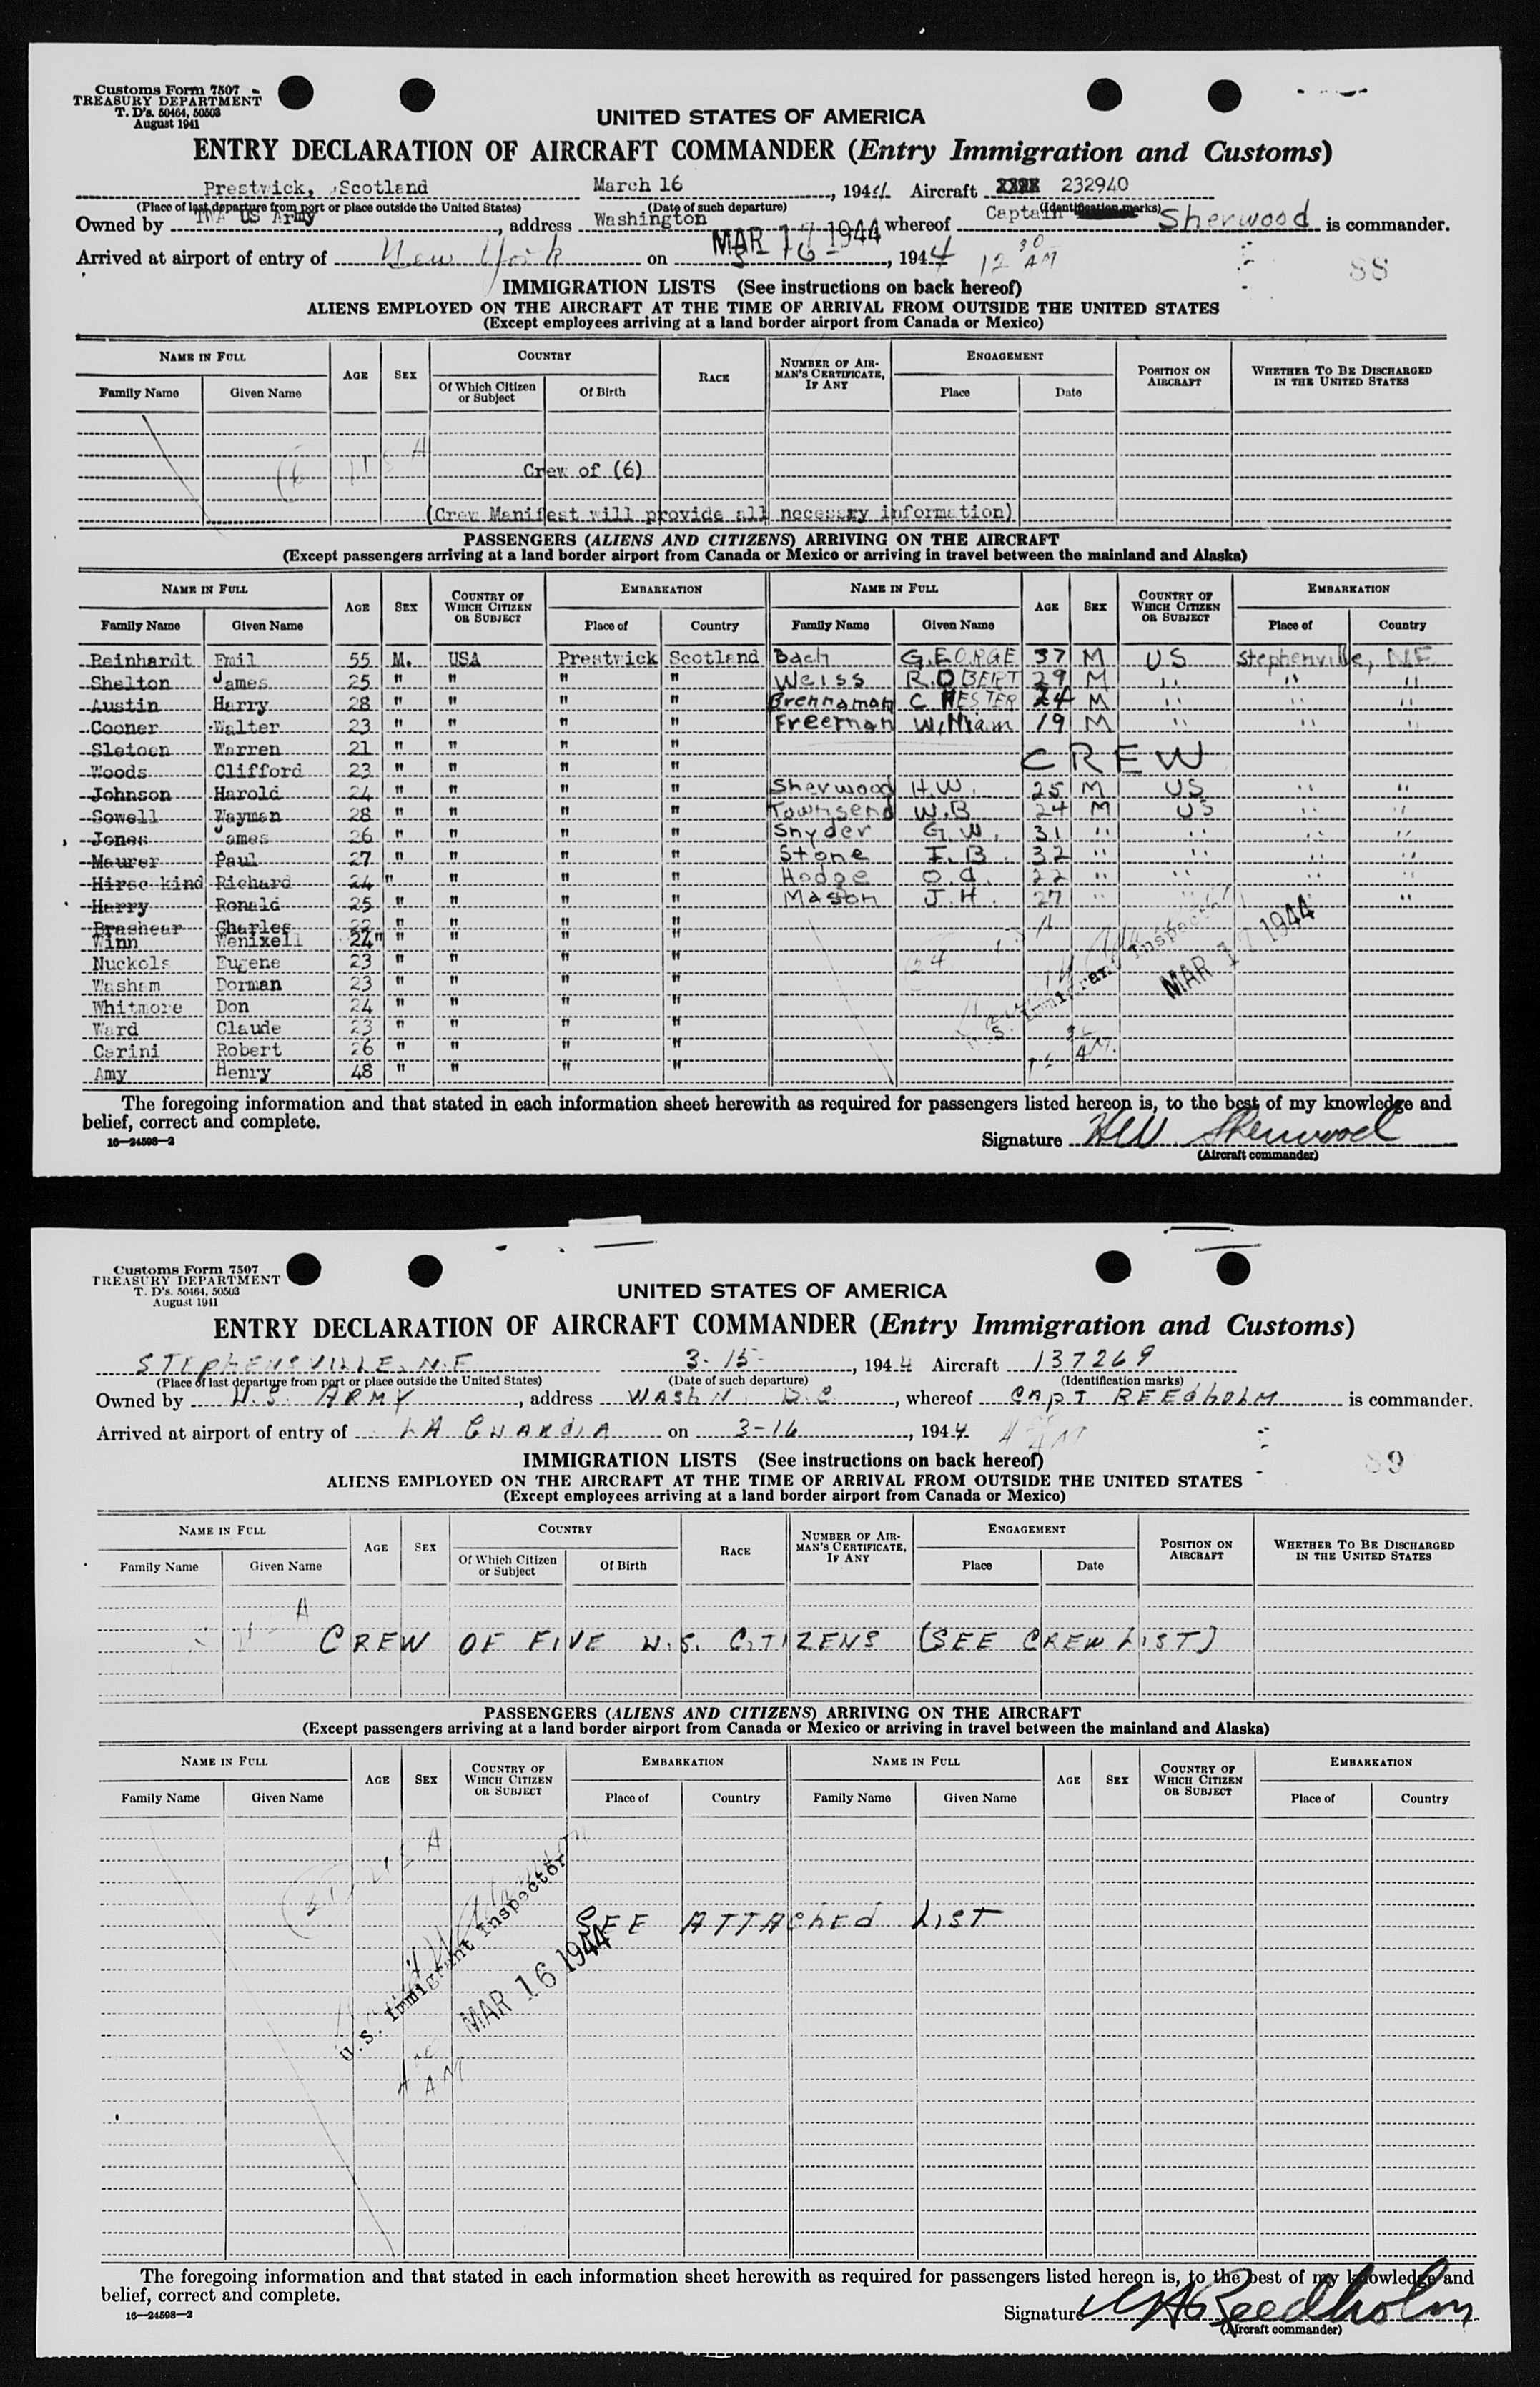 Customs Form 7507
TREASURY DEPARTMENT
T. D's. 50464, 50503
August 1941
UNITED STATES OF AMERICA
ENTRY DECLARATION OF AIRCRAFT COMMANDER (Entry Immigration and Customs)
Prestwick, Scotland March 16, 1944 Aircraft 232940
(Place of last departure from port or place outside the United States) (Date of such departure) (Identification marks)
Owned by TWA US Army, address Washington whereof Captain Sherwood is commander.
MAR 17 1944
Arrived at airport of entry of New York on 3 16, 1944 12 30 AM
88
IMMIGRATION LISTS (See instructions on back hereof)
ALIENS EMPLOYED ON THE AIRCRAFT AT THE TIME OF ARRIVAL FROM OUTSIDE THE UNITED STATES
(Except employees arriving at a land border airport from Canada or Mexico)
NAME IN FULL AGE SEX COUNTRY RACE NUMBER OF AIRMAN'S CERTIFICATE, IF ANY ENGAGEMENT POSITION ON AIRCRAFT WHETHER TO BE DISCHARGED IN THE UNITED STATES
Family Name Given Name Of Which Citizen or Subject Of Birth Place Date
Crew of (6)
(Crew Manifest will provide all necessary information)
PASSENGERS (ALIENS AND CITIZENS) ARRIVING ON THE AIRCRAFT
(Except passengers arriving at a land border airport from Canada or Mexico or arriving in travel between the mainland and Alaska)
NAME IN FULL AGE SEX COUNTRY OF WHICH CITIZEN OR SUBJECT EMBARKATION NAME IN FULL AGE SEX COUNTRY OF WHICH CITIZEN OR SUBJECT EMBARKATION
Family Name Given Name Place of Country Family Name Given Name Place of Country
Reinhardt Emil 55 M. USA Prestwick Scotland Bach GEORGE 37 M US Stephenville, NF
Shelton James 25 " " " " Weiss ROBERT 29 M " " "
Austin Harry 28 " " " " Brennaman CHESTER 24 M " " "
Cooner Walter 23 " " " " Freeman William 19 M " " "
Sletoen Warren 21 " " " "
CREW
Woods Clifford 23 " " " "
Johnson Harold 24 " " " " Sherwood H.W. 25 M US " "
Sowell Wayman 28 " " " " Townsend W.B 24 M US " "
Jones James 26 " " " " Snyder G.W. 31 " " " "
Maurer Paul 27 " " " " Stone I.B. 32 " " " "
Hirsc kind Richard 24 " " " " Hodge O.A. 22 " " " "
Harry Ronald 25 " " " " Mason J.H. 27 " " " "
Brashear Charles 22 " " " "
Winn Wenixell 24 " " " "
Nuckols Eugene 23 " " " "
Washam Dorman 23 " " " "
Whitmore Don 24 " " " "
Ward Claude 23 " " " "
Carini Robert 26 " " " "
Amy Henry 48 " " " "
U.S. Immigrant Inspector
MAR 17 1944
The foregoing information and that stated in each information sheet herewith as required for passengers listed hereon is, to the best of my knowledge and
belief, correct and complete.
16—24598—2
Signature HW Sherwood
(Aircraft commander)
Customs Form 7507
TREASURY DEPARTMENT
T. D's. 50464, 50503
August 1941
UNITED STATES OF AMERICA
ENTRY DECLARATION OF AIRCRAFT COMMANDER (Entry Immigration and Customs)
STEPHENSVILLE, N.F 3-15-, 1944 Aircraft 137269
(Place of last departure from port or place outside the United States) (Date of such departure) (Identification marks)
Owned by U.S. ARMY, address WASHN. D.C, whereof CAPT REEDHOLM is commander.
Arrived at airport of entry of LA GUARDIA on 3-16, 1944 4 00 AM
89
IMMIGRATION LISTS (See instructions on back hereof)
ALIENS EMPLOYED ON THE AIRCRAFT AT THE TIME OF ARRIVAL FROM OUTSIDE THE UNITED STATES
(Except employees arriving at a land border airport from Canada or Mexico)
NAME IN FULL AGE SEX COUNTRY RACE NUMBER OF AIRMAN'S CERTIFICATE, IF ANY ENGAGEMENT POSITION ON AIRCRAFT WHETHER TO BE DISCHARGED IN THE UNITED STATES
Family Name Given Name Of Which Citizen or Subject Of Birth Place Date
CREW OF FIVE U.S. CITIZENS (SEE CREW LIST)
PASSENGERS (ALIENS AND CITIZENS) ARRIVING ON THE AIRCRAFT
(Except passengers arriving at a land border airport from Canada or Mexico or arriving in travel between the mainland and Alaska)
NAME IN FULL AGE SEX COUNTRY OF WHICH CITIZEN OR SUBJECT EMBARKATION NAME IN FULL AGE SEX COUNTRY OF WHICH CITIZEN OR SUBJECT EMBARKATION
Family Name Given Name Place of Country Family Name Given Name Place of Country
SEE ATTACHED LIST
U.S. Immigrant Inspector
MAR 16 1944
4 00 AM
The foregoing information and that stated in each information sheet herewith as required for passengers listed hereon is, to the best of my knowledge and
belief, correct and complete.
16—24598—2
Signature Reedholm
(Aircraft commander)